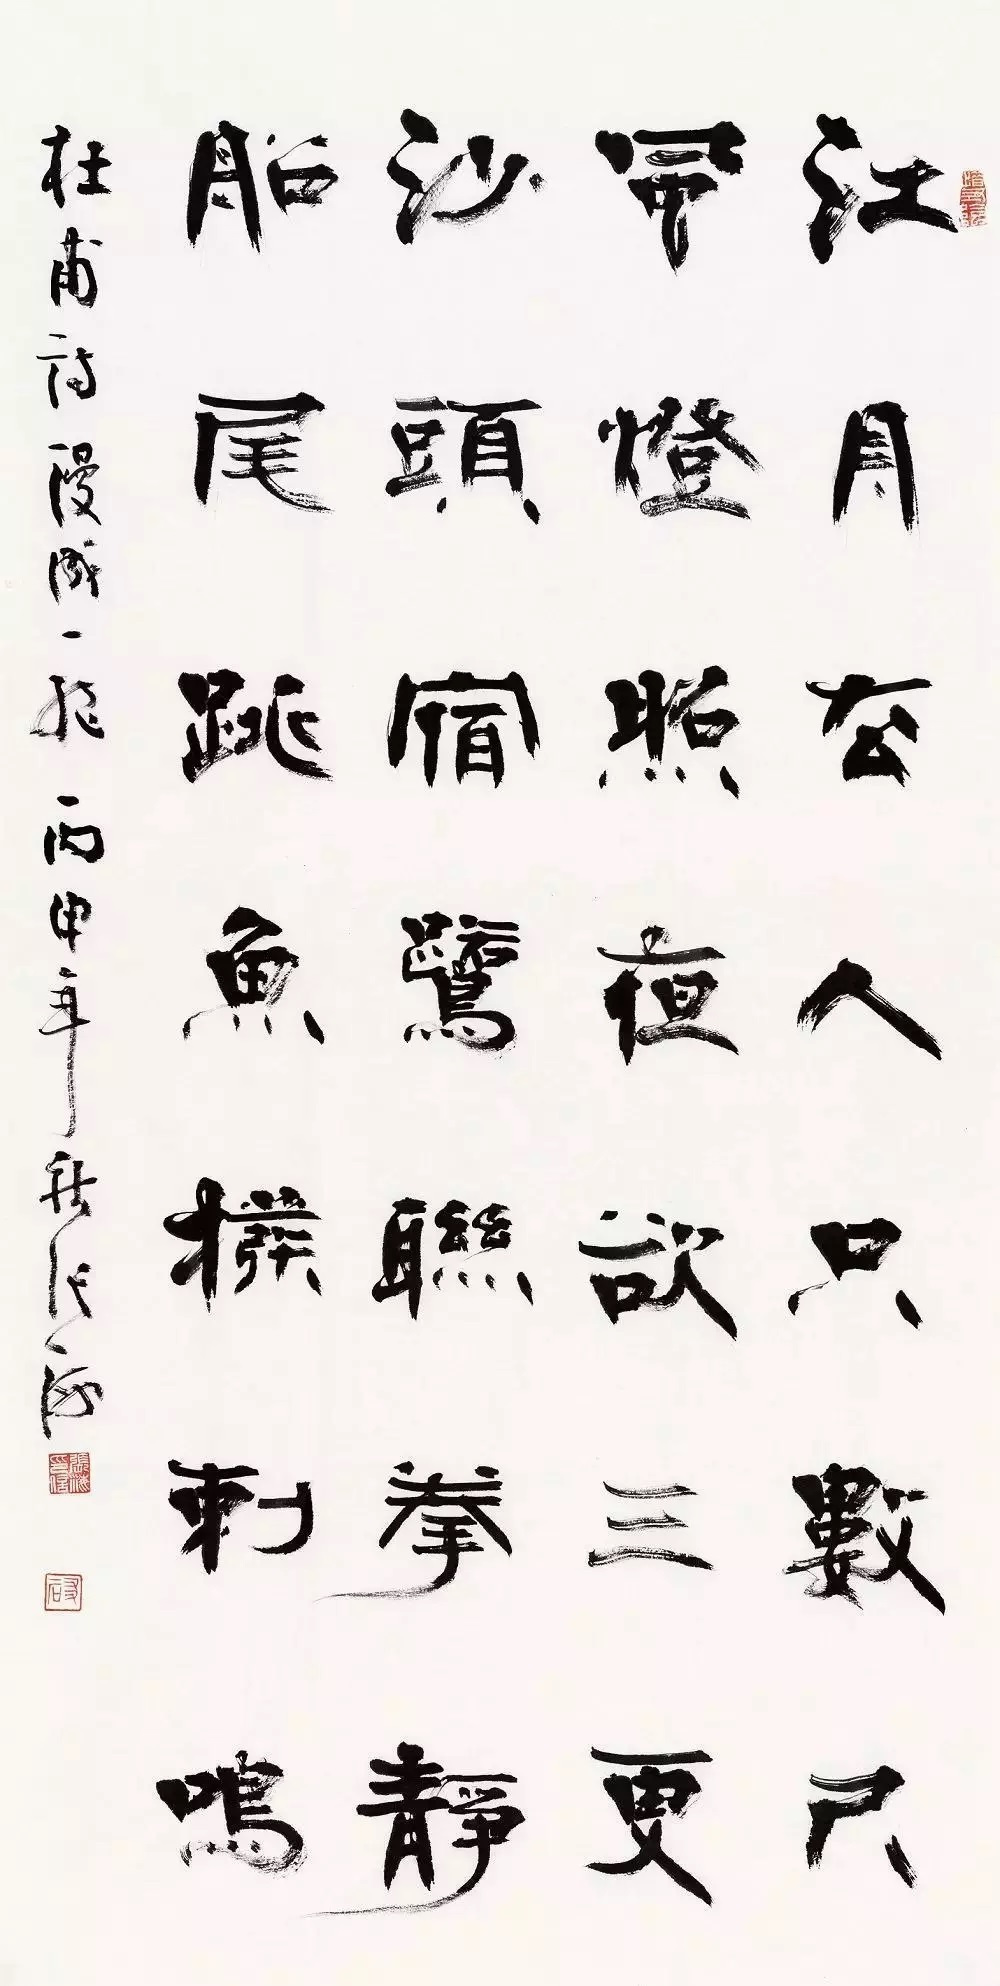 江月去人只數尺
風燈照夜欲三更
沙頭宿鷺聯拳靜
船尾跳魚撥剌鳴
杜甫詩漫成一絕 丙申年秋張海
張海印信